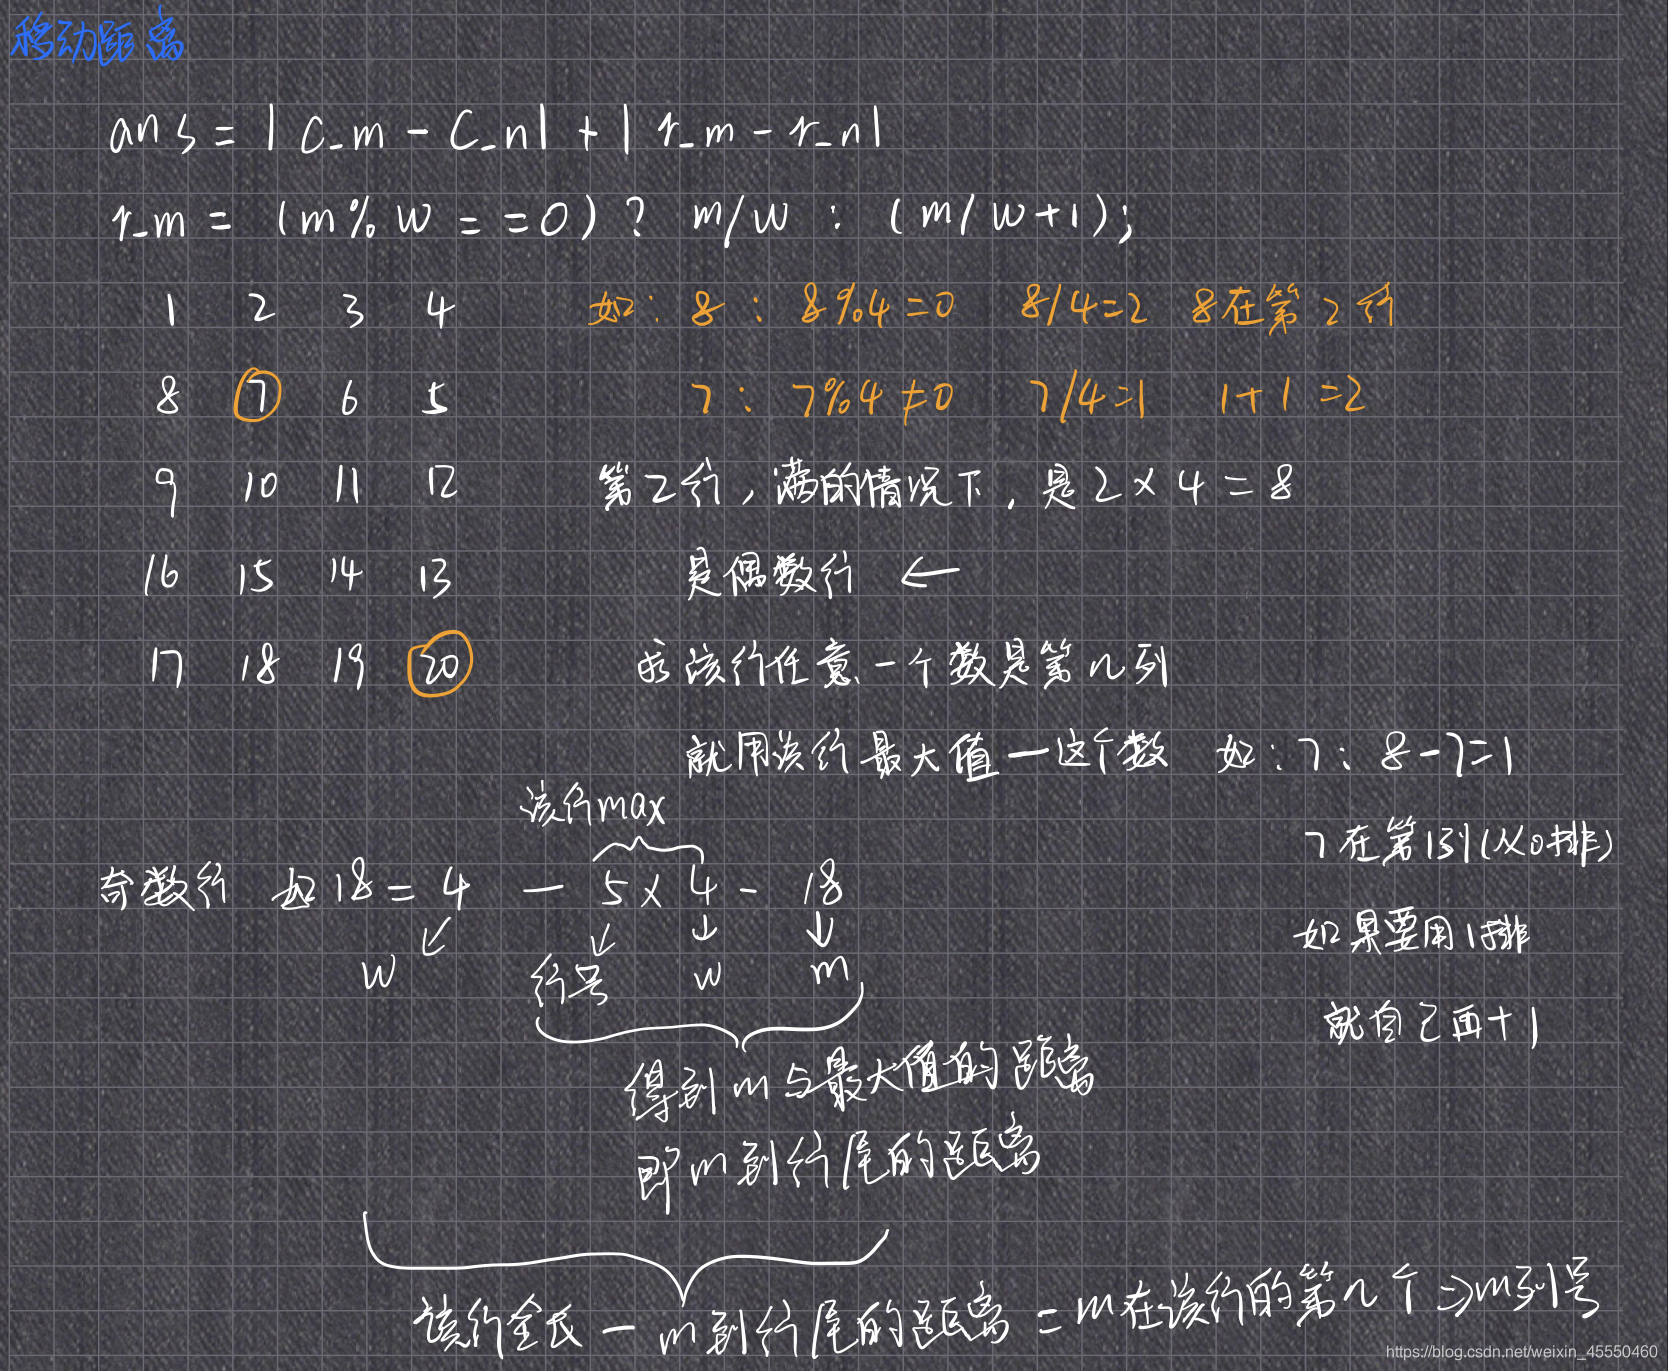 移动距离
ans = | c_m - c_n | + | r_m - r_n |
r_m = (m % w == 0) ? m/w : (m/w+1);
1 2 3 4 如: 8: 8%4=0 8/4=2 8在第2行
8 7 6 5 7: 7%4≠0 7/4=1 1+1=2
9 10 11 12 第2行,满的情况下,是2×4=8
16 15 14 13 是偶数行 ←
17 18 19 20 求该行任意一个数是第几列
就用该行最大值一这个数 如:7: 8-7=1
该行max
7在第1列(从0排)
奇数行 如18 = 4 - 5×4 - 18
如果要用1排
w 行号 w m
就自己再+1
得到m与最大值的距离
即m到行尾的距离
该行全长 - m到行尾的距离 = m在该行的第几个 ⇒ m列号
https://blog.csdn.net/weixin_45550460